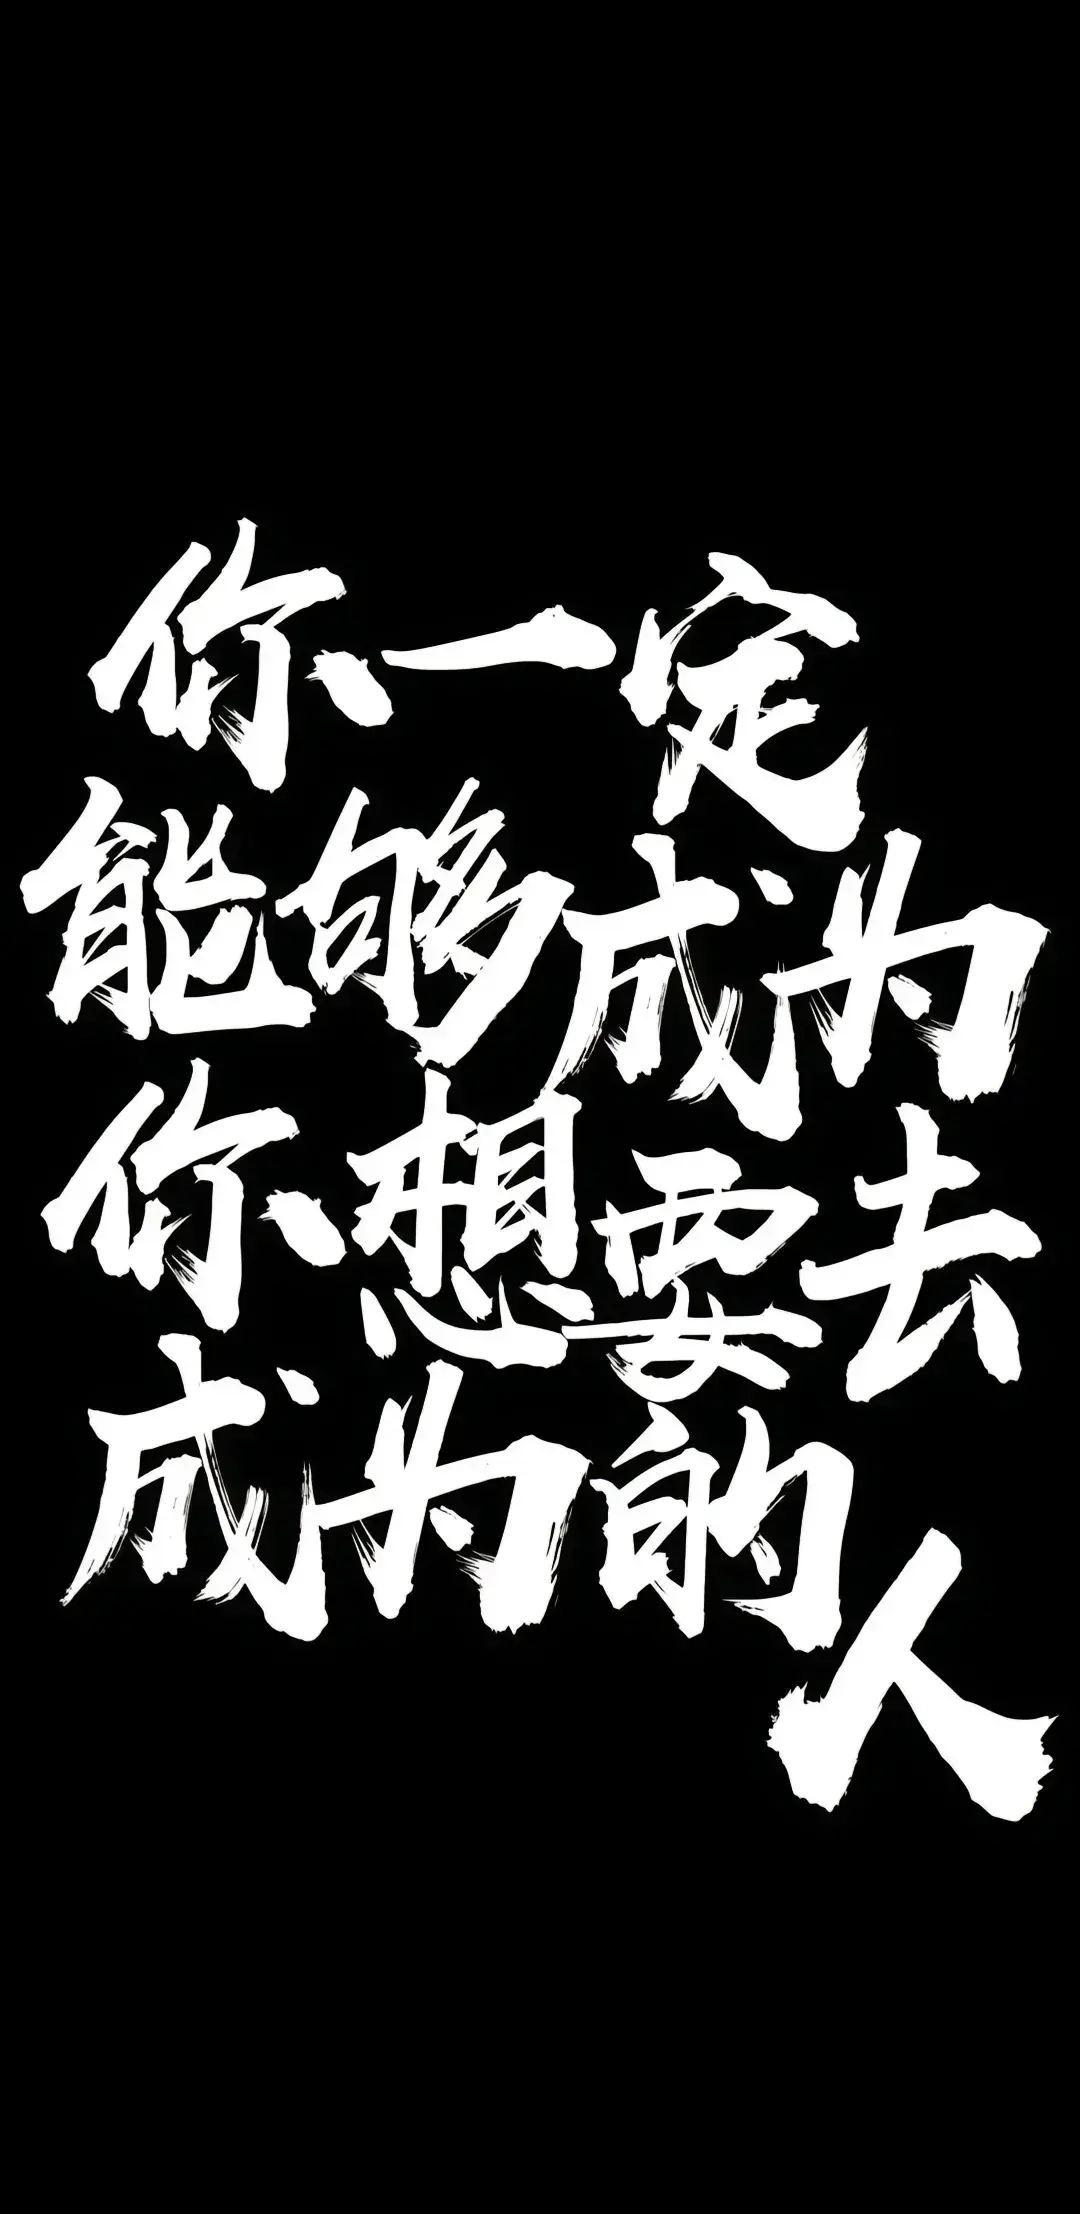 你一定
能够成为
你想要去
成为的
人